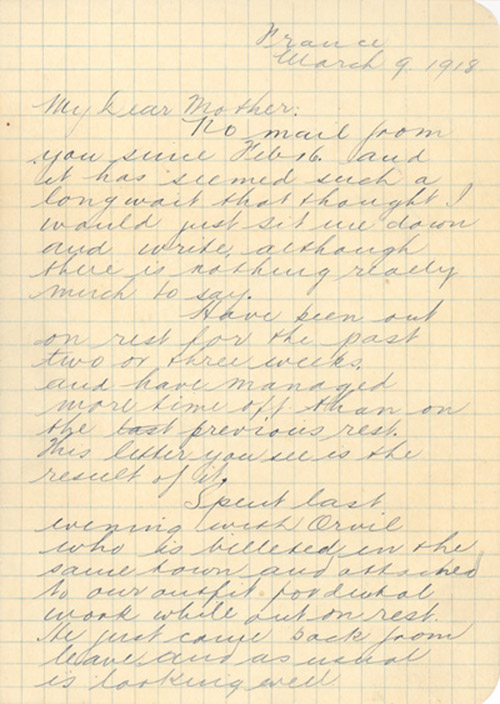 France
March 9. 1918
My Dear Mother:
No mail from
you since Feb 16. and
it has seemed such a
long wait that thought I
would just sit me down
and write, although
there is nothing really
much to say.
Have been out
on rest for the past
two or three weeks,
and have managed
more time off than on
the last previous rest.
This letter you see is the
result of it.
Spent last
evening with Orvil
who is billeted in the
same town and attached
to our outfit for dental
work while out on rest.
He just came back from
leave and as usual
is looking well